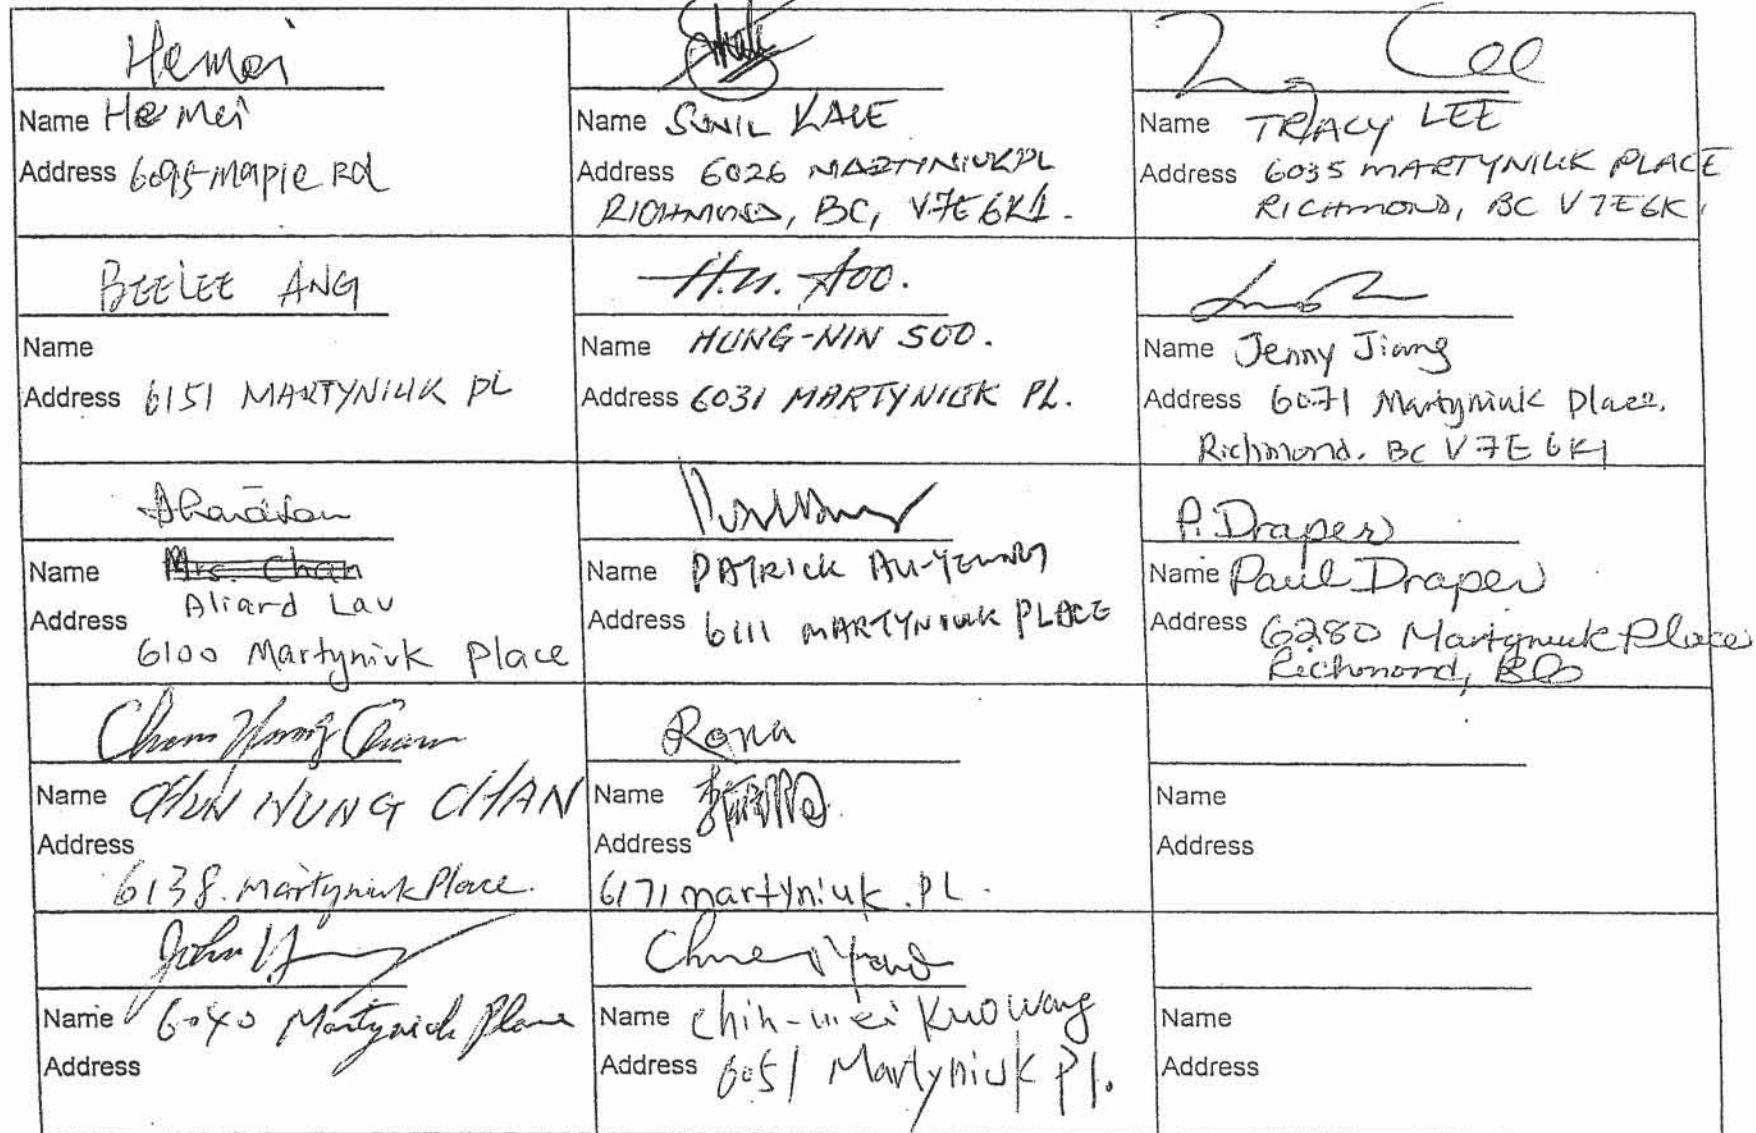 Hemei
Name He Mei
Address 6095 maple Rd
Name SUNIL KALE
Address 6026 MARTYNIUK PL
RICHMOND, BC, V7E 6K1.
Lee
Name TRACY LEE
Address 6035 MARTYNIUK PLACE
RICHMOND, BC V7E6K1
BEELEE ANG
Name
Address 6151 MARTYNIUK PL
H.N. Soo.
Name HUNG-NIN SOO.
Address 6031 MARTYNIUK PL.
Name Jenny Jiang
Address 6071 Martyniuk Place.
Richmond. BC V7E 6K1
Name Mrs. Chan
Aliard Lau
Address
6100 Martyniuk Place
Name PATRICK AU-YEUNG
Address 6111 MARTYNIUK PLACE
P. Draper
Name Paul Draper
Address 6280 Martyniuk Place
Richmond, BC
Chun Hung Chan
Name CHUN HUNG CHAN
Address
6138. Martyniuk Place.
Rona
Name
Address
6171 martyniuk. PL.
Name
Address
John
Name 6040 Martyniuk Place
Address
Name Chih-mei Kuo Wang
Address 6051 Martyniuk Pl.
Name
Address